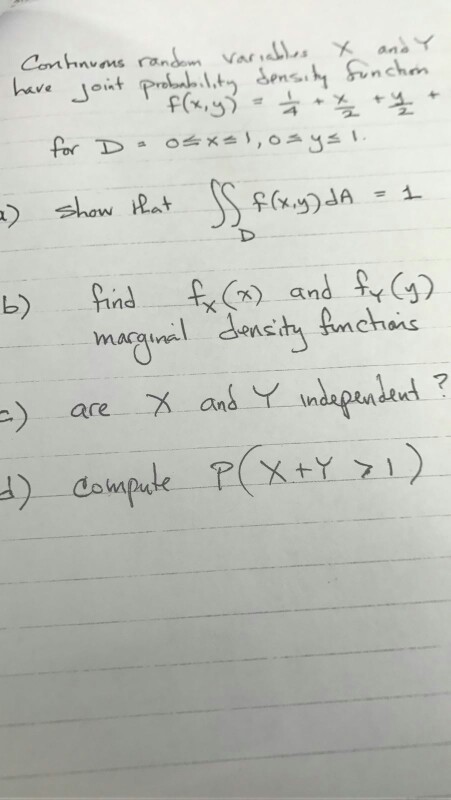 Continuous random variables X and Y
have joint probability density function
f(x,y) = 1/4 + x/2 + y/2 +
for D = 0≤x≤1, 0≤y≤1.
a) show that ∬_D f(x,y)dA = 1
b) find f_X(x) and f_Y(y)
marginal density functions
c) are X and Y independent?
d) compute P(X+Y>1)